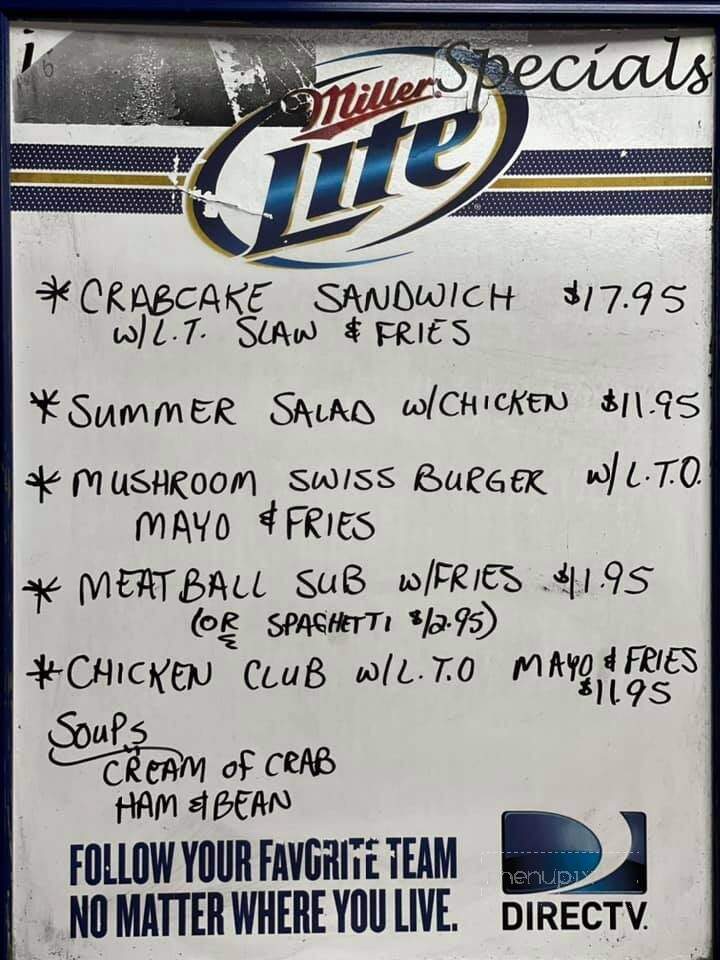 Specials
Miller
Lite
* CRABCAKE SANDWICH $17.95
W/L.T. SLAW & FRIES
* SUMMER SALAD W/CHICKEN $11.95
* MUSHROOM SWISS BURGER W/L.T.O.
MAYO & FRIES
* MEATBALL SUB W/FRIES $11.95
(OR SPAGHETTI $12.95)
* CHICKEN CLUB W/L.T.O MAYO & FRIES
$11.95
SOUPS
CREAM OF CRAB
HAM & BEAN
FOLLOW YOUR FAVORITE TEAM
NO MATTER WHERE YOU LIVE.
menupix
DIRECTV.